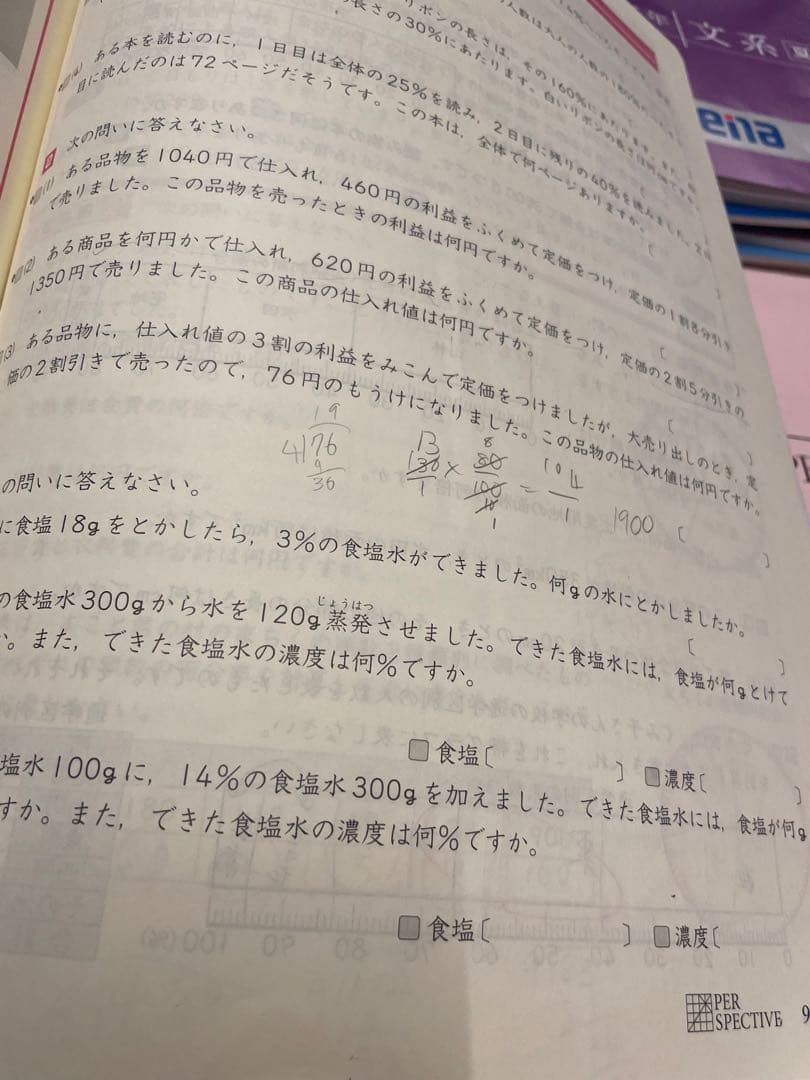 リボンの長さは，その160%にあたります。
長さの30%にあたります。白いリボンの長さは
(4) ある本を読むのに，1日目は全体の25%を読み，2日目に残りの40%を読みました。2日
目に読んだのは72ページだそうです。この本は，全体で何ページありますか。
次の問いに答えなさい。
(1) ある品物を1040円で仕入れ，460円の利益をふくめて定価をつけ，定価の1割8分引き
で売りました。この品物を売ったときの利益は何円ですか。
(2) ある商品を何円かで仕入れ，620円の利益をふくめて定価をつけ，定価の2割5分引きの
1350円で売りました。この商品の仕入れ値は何円ですか。
(3) ある品物に，仕入れ値の3割の利益をみこんで定価をつけましたが，大売り出しのとき，定
価の2割引きで売ったので，76円のもうけになりました。この品物の仕入れ値は何円ですか。
19
4)76
36
13 8
130/1 × 80/100 = 104/1
10
1
1900 〔 〕
の問いに答えなさい。
に食塩18gをとかしたら，3%の食塩水ができました。何gの水にとかしましたか。
〔 〕
の食塩水300gから水を120g蒸発させました。できた食塩水には，食塩が何gとけて
じょうはつ
。また，できた食塩水の濃度は何%ですか。
食塩〔 〕 濃度〔 〕
塩水100gに，14%の食塩水300gを加えました。できた食塩水には，食塩が何g
すか。また，できた食塩水の濃度は何%ですか。
食塩〔 〕 濃度〔
PER
SPECTIVE 9
文系
ena